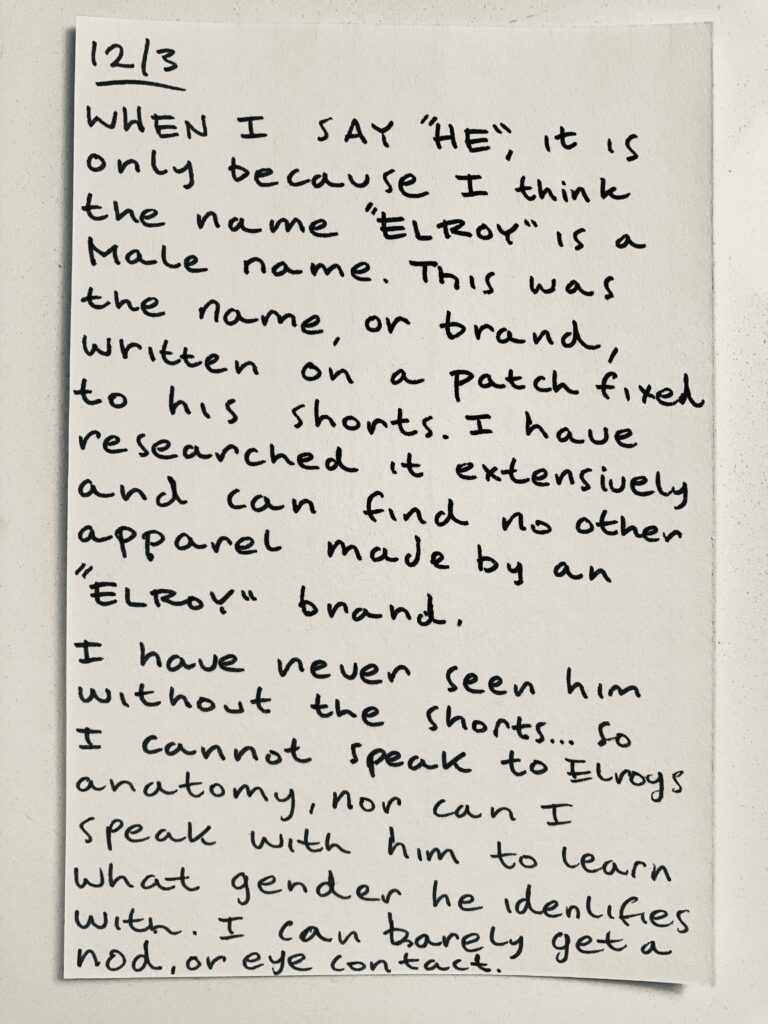 12/3
WHEN I SAY "HE", it is
only because I think
the name "ELROY" is a
Male name. This was
the name, or brand,
written on a patch fixed
to his shorts. I have
researched it extensively
and can find no other
apparel made by an
"ELROY" brand.
I have never seen him
without the shorts... so
I cannot speak to Elroys
anatomy, nor can I
speak with him to learn
what gender he identifies
with. I can barely get a
nod, or eye contact.